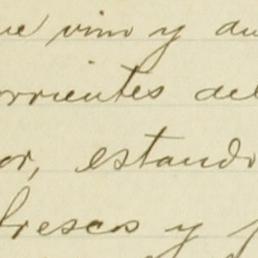 ue vino y au
orrientes del
or, estando
frescos y